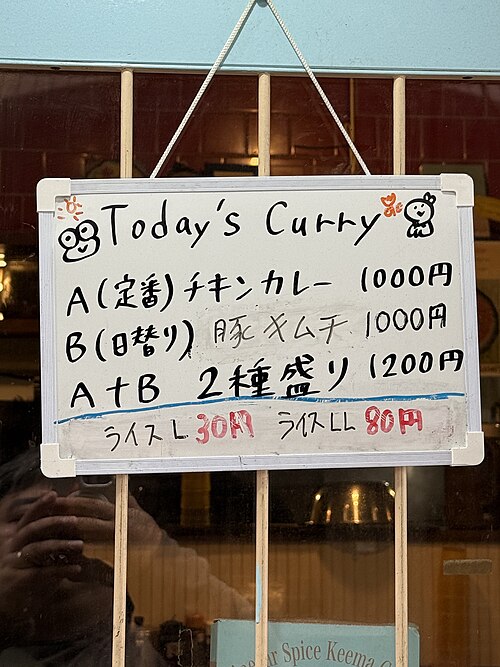 Today's Curry
A(定番)チキンカレー 1000円
B(日替り) 豚キムチ 1000円
A+B 2種盛り 1200円
ライスL 30円 ライスLL 80円
Spice Keema